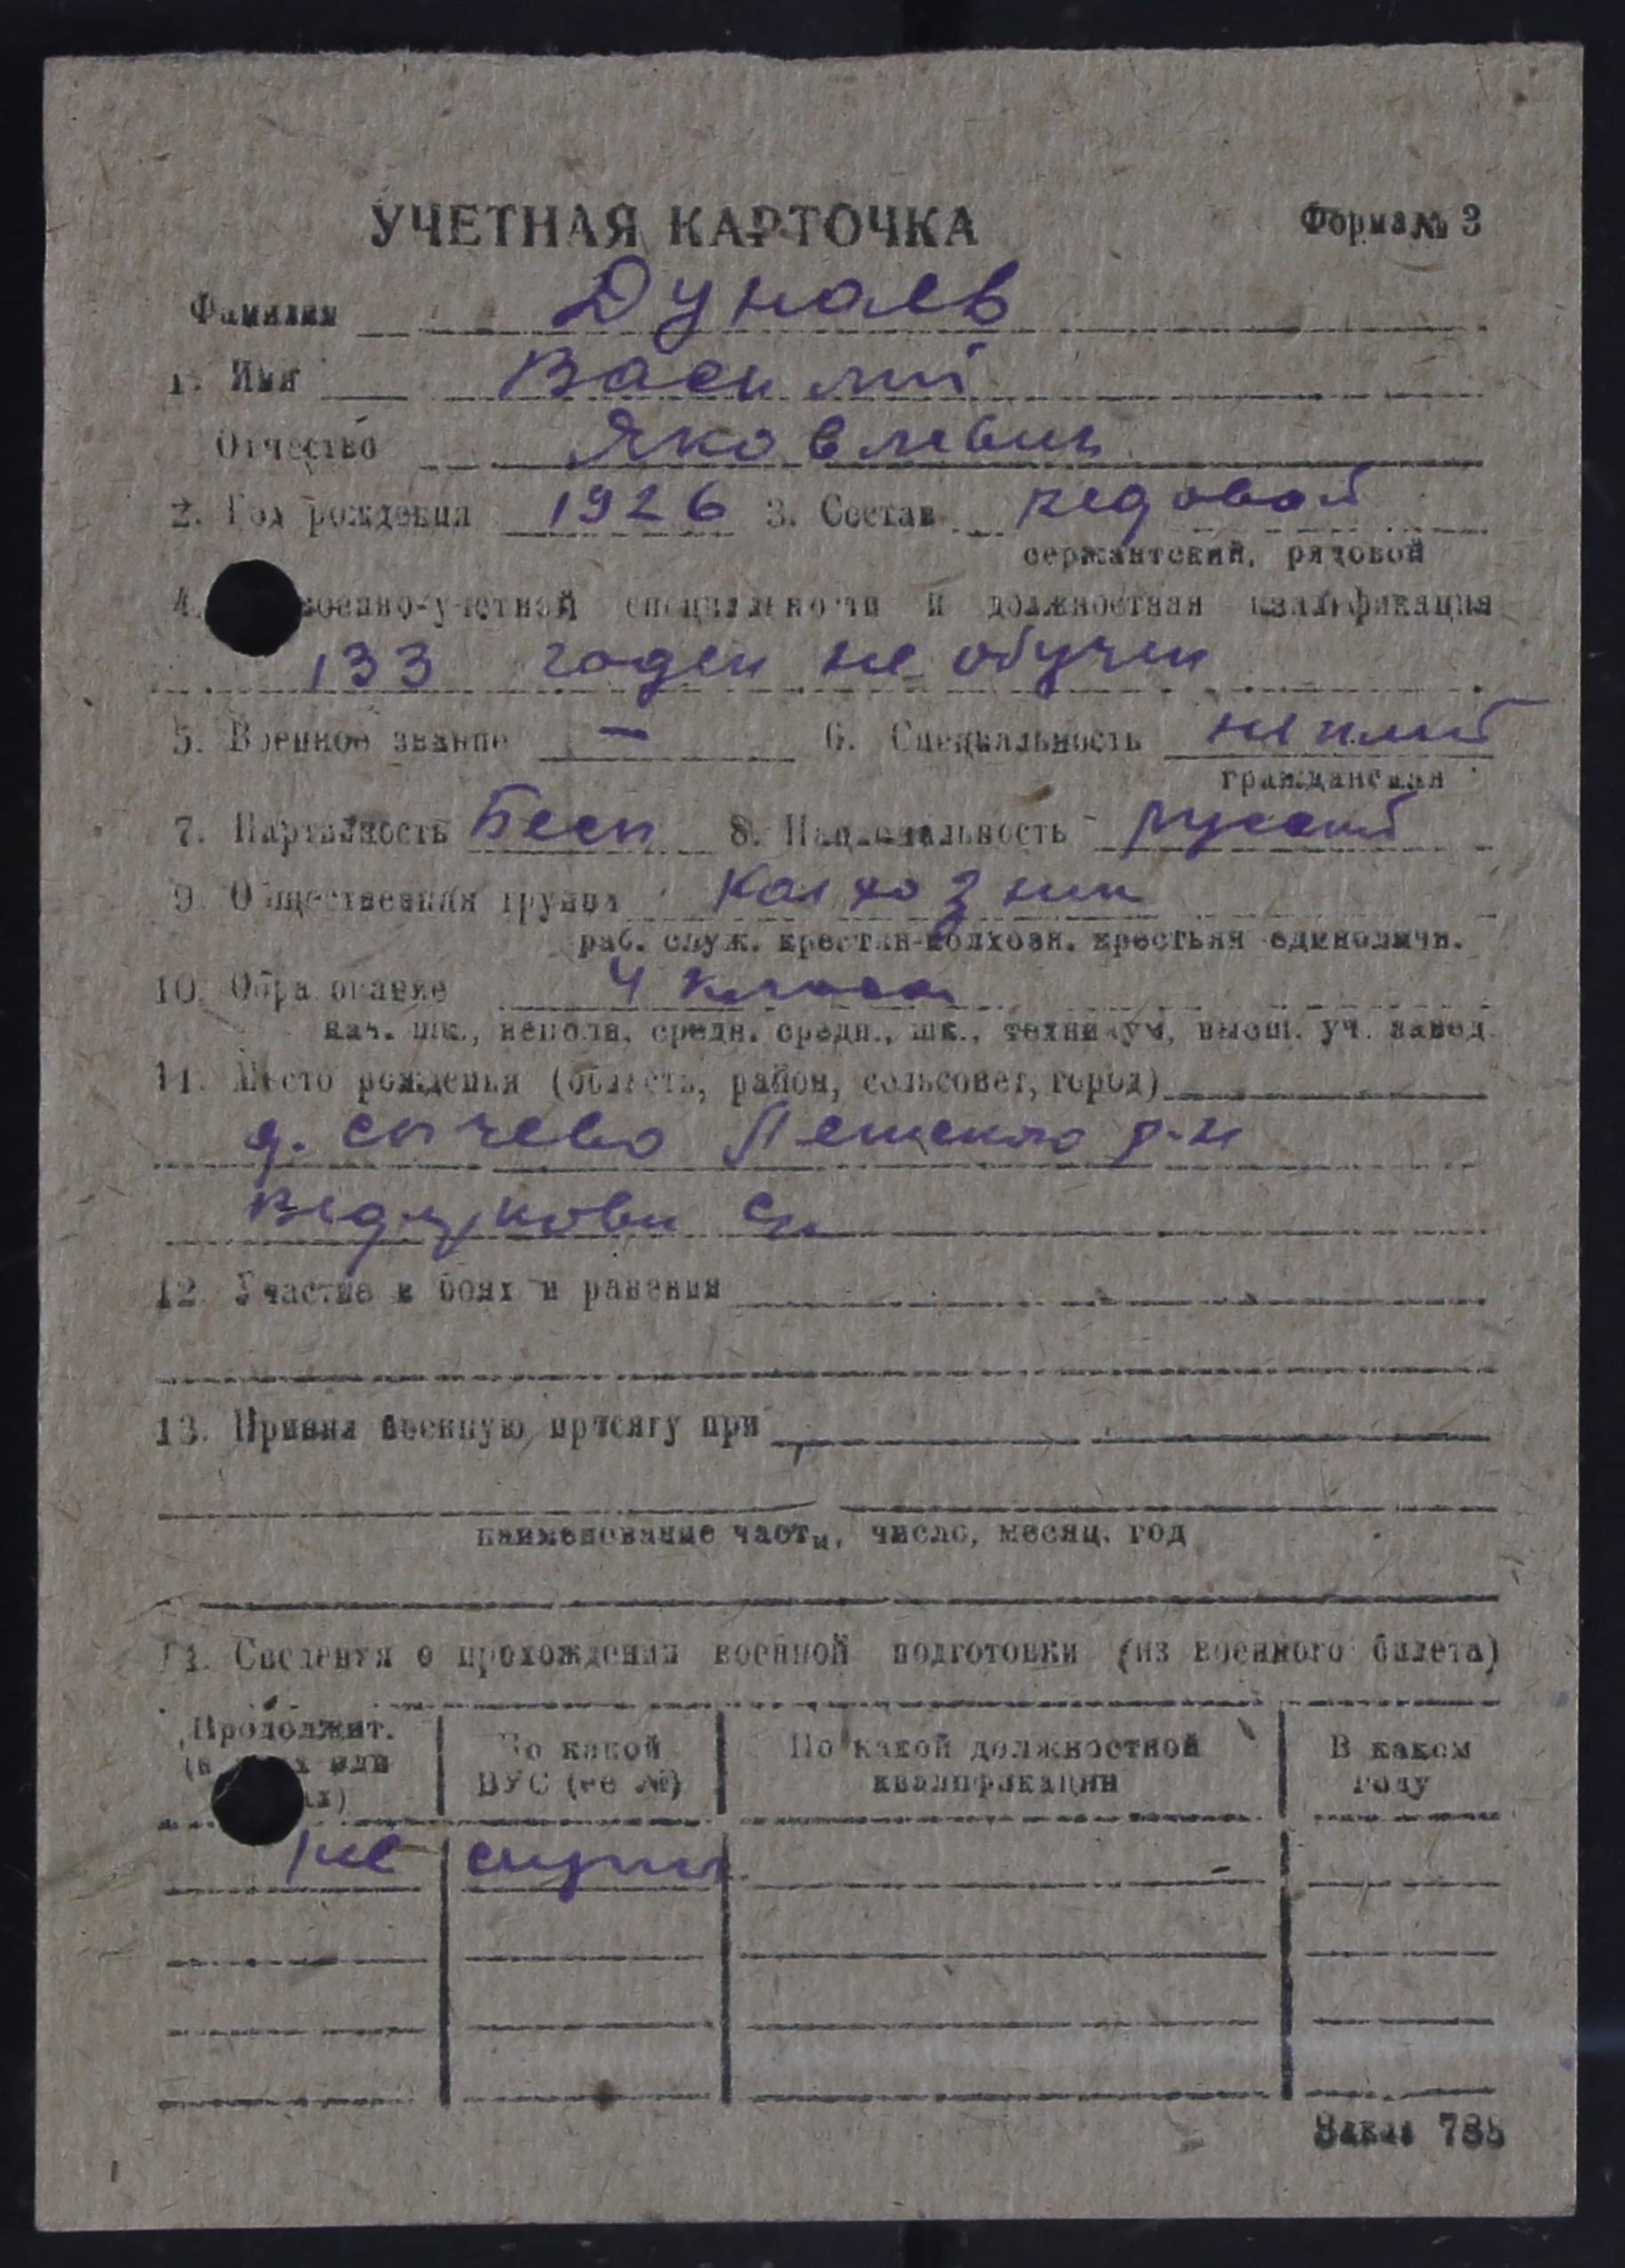 УЧЕТНАЯ КАРТОЧКА Форма № 3
Фамилия Дунаев
1. Имя Василий
Отчество Яковлевич
2. Год рождения 1926 3. Состав редовой
сержантский, рядовой
4. военно-учетной специальности и должностная квалификация
133 годен не обучен
5. Военное звание — 6. Специальность
гражданская
7. Партийность Бесп 8. Национальность русский
9. Общественная группа Колхозник
раб. служ. крестян-колхозн. крестьян единоличн.
10. Образование 4 класса
нач. шк., неполн. средн. средн., шк., техникум, высш. уч. завед.
11. Место рожденья (область, район, сельсовет, город)
д. Сычево р-н
12. Участие в боях и ранения
13. Принял военную присягу при
наименование части, число, месяц, год
14. Сведения о прохождении военной подготовки (из военного билета)
Продолжит. По какой По какой должностной В каком
или ВУС (ее №) квалификации году
не служил
Заказ 785